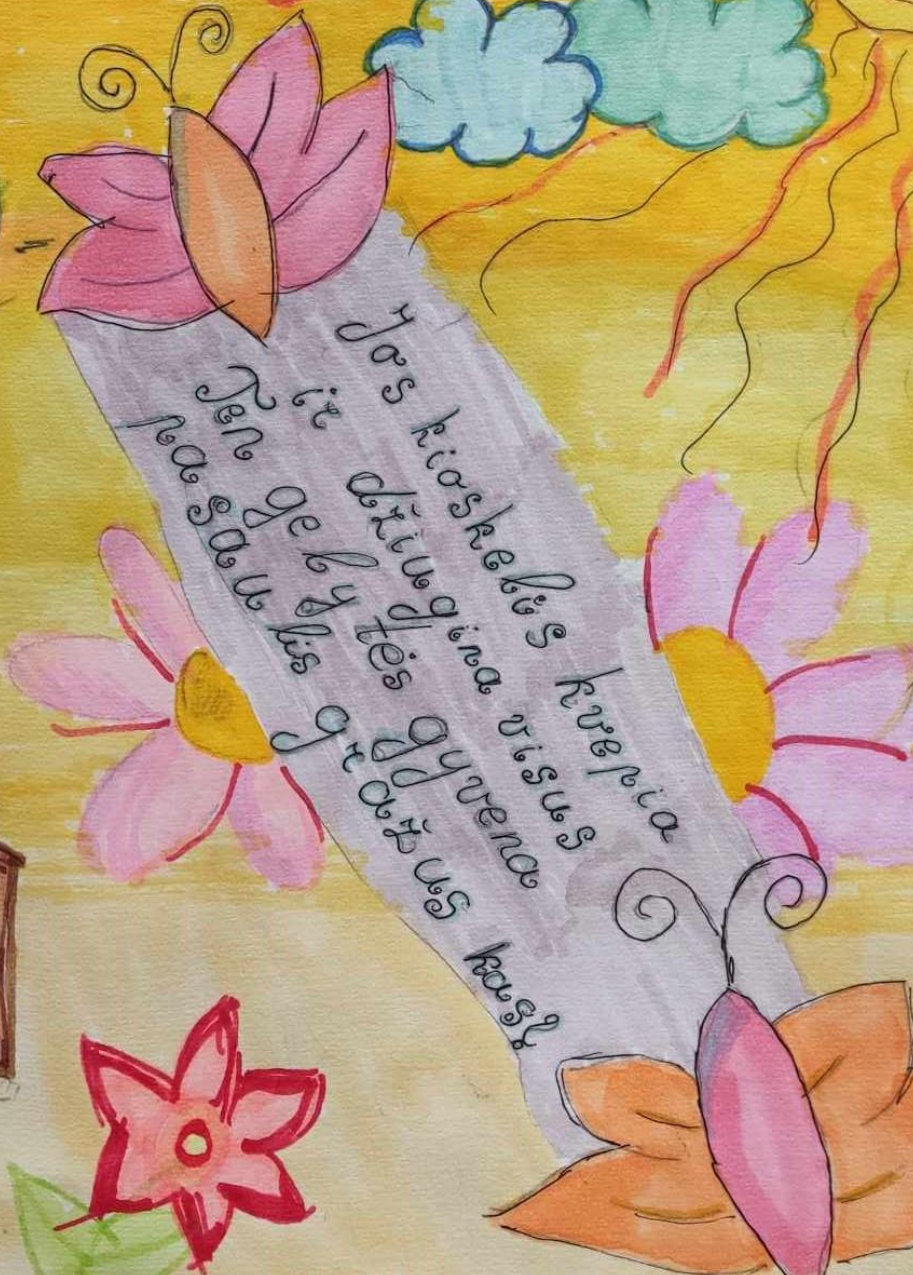 Jos kioskelis kvepia
ir džiugina visus
Ten gėlytės gyvena
pasaulis gražus kas?